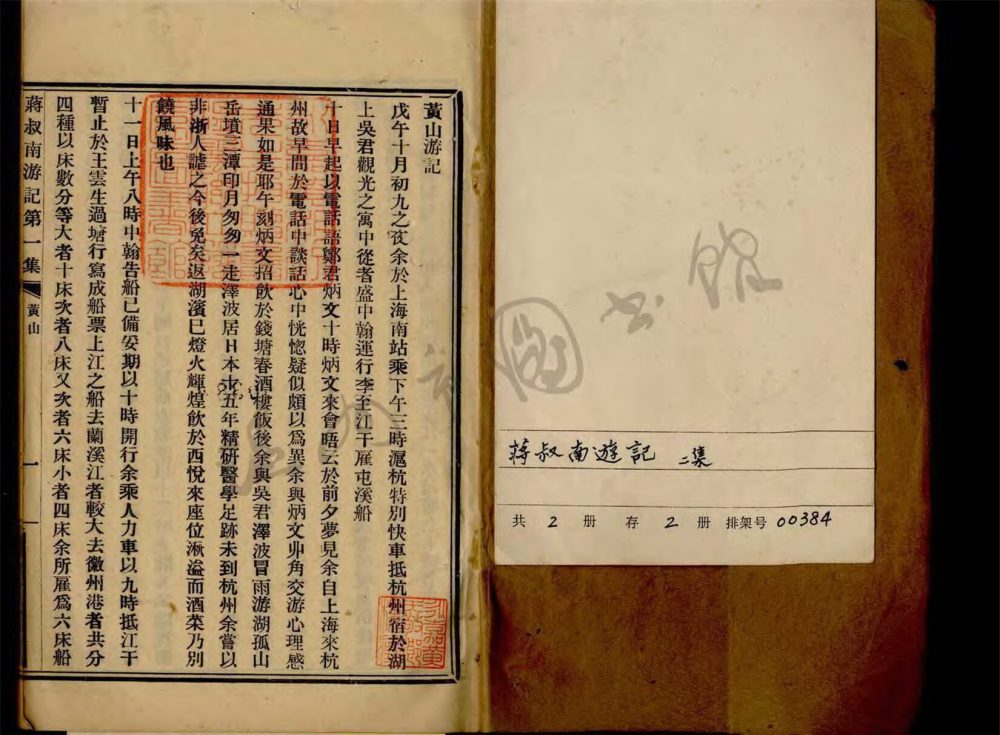 黃山游記
戊午十月初九之夜余於上海南站乘下午三時滬杭特別快車抵杭州宿於湖
上吳君觀光之寓中從者盛中翰運行李至江干雇屯溪船
十日早起以電話語鄭君炳文十時炳文來會晤云於前夕夢見余自上海來杭
州故早間於電話中談話心中恍惚疑似頗以爲異余與炳文丱角交游心理感
通果如是耶午刻炳文招飲於錢塘春酒樓飯後余與吳君澤波冒雨游湖孤山
岳墳三潭印月匆匆一走澤波居日本十五年精研醫學足跡未到杭州余嘗以
非浙人謔之今後免矣返湖濱已燈火輝煌飲於西悅來座位湫溢而酒菜乃別
饒風味也
十一日上午八時中翰告船已備妥期以十時開行余乘人力車以九時抵江干
暫止於王雲生過塘行寫成船票上江之船去蘭溪江者較大去徽州港者共分
四種以床數分等大者十床次者八床又次者六床小者四床余所雇爲六床船
蔣叔南游記第一集 黃山 一
蔣叔南遊記 二集
共 2 册 存 2 册 排架号 00384